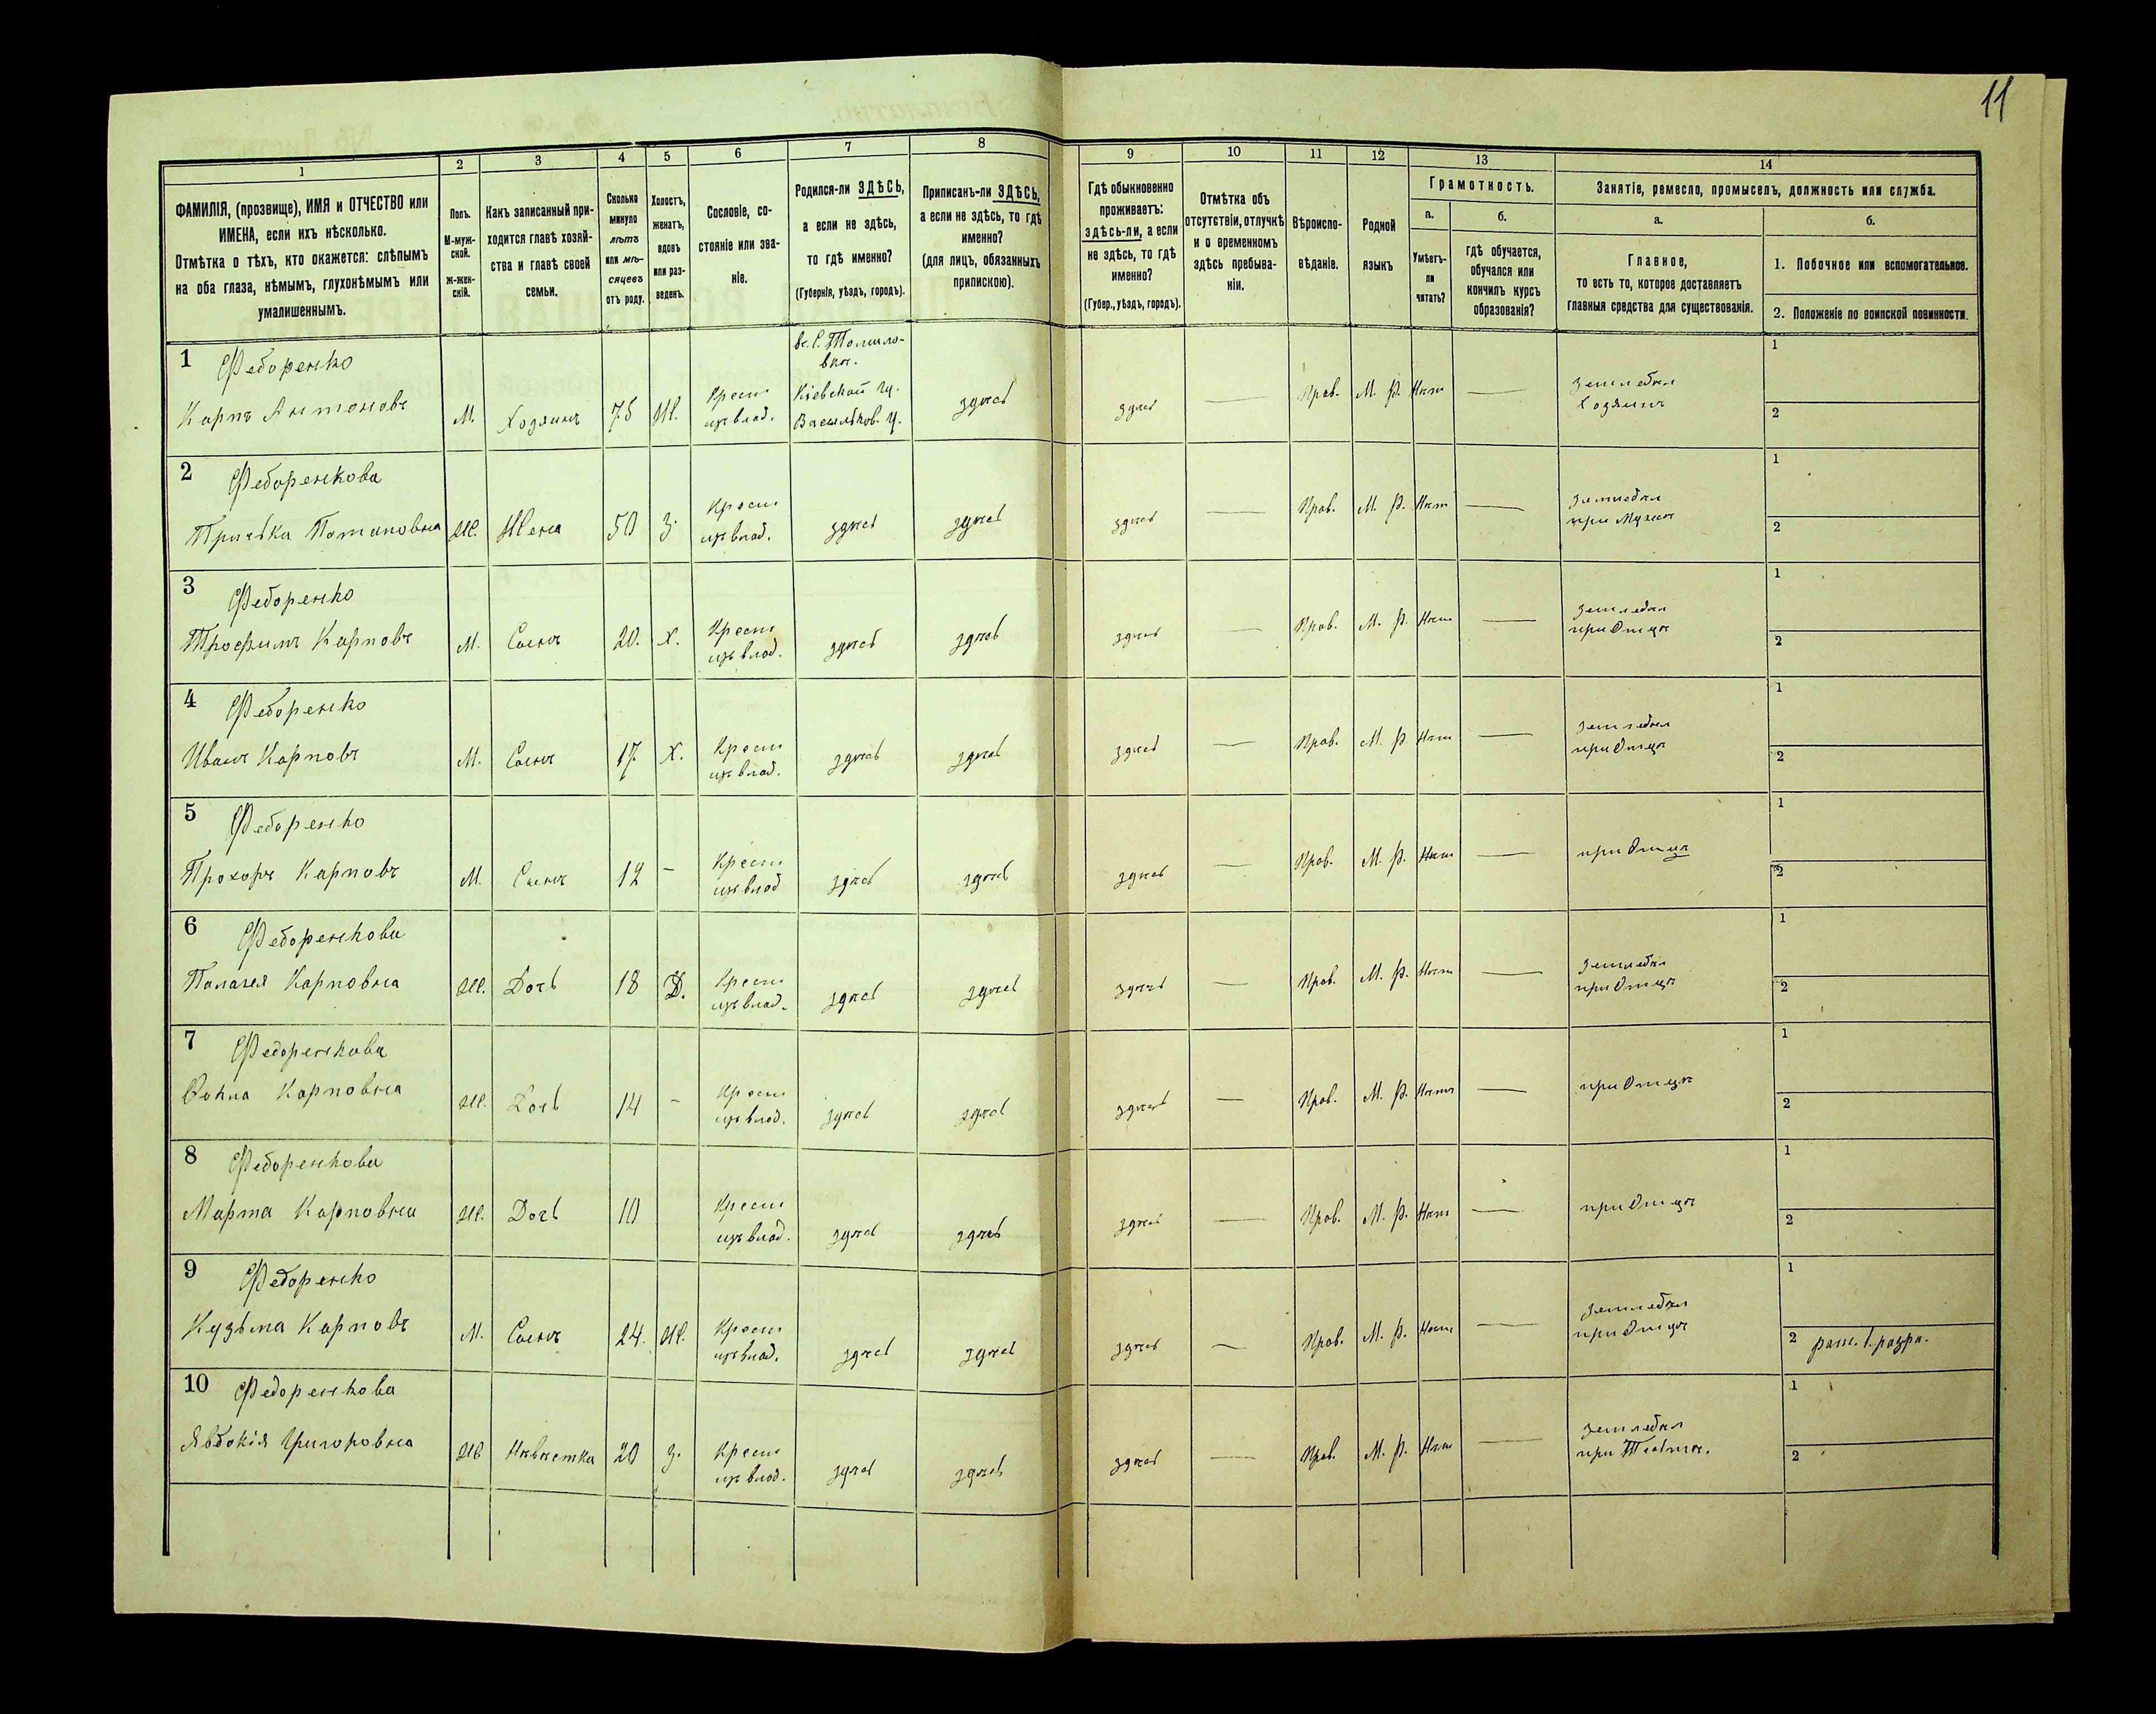 11
1
2
3
4
5
6
7
8
9
10
11
12
13
14
ФАМИЛІЯ, (прозвище), ИМЯ и ОТЧЕСТВО или
ИМЕНА, если ихъ нѣсколько.
Отмѣтка о тѣхъ, кто окажется: слѣпымъ
на оба глаза, нѣмымъ, глухонѣмымъ или
умалишеннымъ.
Полъ.
М-муж-
ской.
Ж-жен-
скій.
Какъ записанный при-
ходится главѣ хозяй-
ства и главѣ своей
семьи.
Сколько
минуло
лѣтъ
или мѣ-
сяцевъ
отъ роду.
Холостъ,
женатъ,
вдовъ
или раз-
веденъ.
Сословіе, со-
стояніе или зва-
ніе.
Родился-ли ЗДѢСЬ,
а если не здѣсь,
то гдѣ именно?
(Губернія, уѣздъ, городъ).
Приписанъ-ли ЗДѢСЬ,
а если не здѣсь, то гдѣ
именно?
(для лицъ, обязанныхъ
припискою).
Гдѣ обыкновенно
проживаетъ:
здѣсь-ли, а если
не здѣсь, то гдѣ
именно?
(Губер., уѣздъ, городъ).
Отмѣтка объ
отсутствіи, отлучкѣ
и о временномъ
здѣсь пребыва-
ніи.
Вѣроиспо-
вѣданіе.
Родной
языкъ
Грамотность.
а.
Умѣетъ-
ли
читать?
б.
гдѣ обучается,
обучался или
кончилъ курсъ
образованія?
Занятіе, ремесло, промыселъ, должность или служба.
а.
Главное,
то есть то, которое доставляетъ
главныя средства для существованія.
б.
1. Побочное или вспомогательное.
2. Положеніе по воинской повинности.
1 Федоренко
Карпъ Антоновъ
М. Хозяинъ 75 Ж.
Крест
изъ влад.
Кіевской гу.
Васильков. у.
здѣсь здѣсь — Прав. М. Р. Нѣт —
земледѣл
Хозяинъ
1
2
2 Федоренкова
Приська Потаповна
Ж. Жена 50 З.
Крест
изъ влад.
здѣсь здѣсь здѣсь — Прав. М. Р. Нѣт —
земледѣл
при Мужѣ
1
2
3 Федоренко
Трофимъ Карповъ
М. Сынъ 20. Х.
Крест
изъ влад.
здѣсь здѣсь здѣсь — Прав. М. Р. Нѣт —
земледѣл
при Отцѣ
1
2
4 Федоренко
Иванъ Карповъ
М. Сынъ 17 Х.
Крест
изъ влад.
здѣсь здѣсь здѣсь — Прав. М. Р. Нѣт —
земледѣл
при Отцѣ
1
2
5 Федоренко
Прохоръ Карповъ
М. Сынъ 12 -
Крест
изъ влад
здѣсь здѣсь здѣсь — Прав. М. Р. Нѣт —
при Отцѣ
1
2
6 Федоренкова
Палагея Карповна
Ж. Дочь 18 Д.
Крест
изъ влад.
здѣсь здѣсь здѣсь — Прав. М. Р. Нѣт —
земледѣл
при Отцѣ
1
2
7 Федоренкова
Карповна
Ж. Дочь 14 -
Крест
изъ влад.
здѣсь здѣсь здѣсь — Прав. М. Р. Нѣт —
при Отцѣ
1
2
8 Федоренкова
Марта Карповна
Ж. Дочь 10
Крест
изъ влад.
здѣсь здѣсь здѣсь — Прав. М. Р. Нѣт —
при Отцѣ
1
2
9 Федоренко
Кузьма Карповъ
М. Сынъ 24. Ж.
Крест
изъ влад.
здѣсь здѣсь здѣсь — Прав. М. Р. Нѣт —
земледѣл
при Отцѣ
1
2 рат. 1. разр.
10 Федоренкова
Явдокія Григоровна
Ж Невѣстка 20 З.
Крест
изъ влад.
здѣсь здѣсь здѣсь — Прав. М. Р. Нѣт —
земледѣл
при
1
2